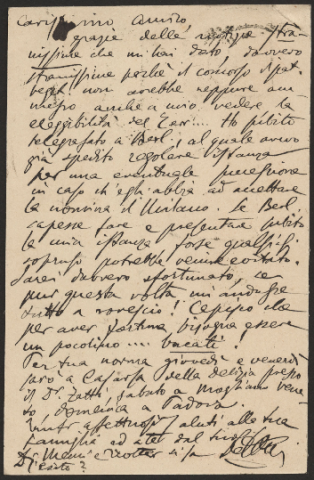 Carissimo amico,
grazie delle notizie stra-
nissime che mi hai dato, davvero
stranissime perchè il concorso di pat.
non avrebbe neppure am-
messo anche a mio vedere la
eleggibilità del Ho subito
telegrafato a Berl. al quale avevo
già spedito regolare istanza
per una eventuale
in caso ch'egli abbia ad accettare
la nomina di Milano. Se Berl.
sapesse fare e presentare subito
la mia istanza forse qualsiasi
sopruso potrebbe venire evitato.
Sarei davvero sfortunato, se
pur questa volta mi andasse
tutto a rovescio! Capisco che
per aver fortuna bisogna essere
un pocolino .... bucati!
Per tua norma giovedì e venerdì
sarò a Casarsa della delizia presso
il Dr. Zatti, sabato a Mogliano Vene-
to, Domenica a Padova.
tanti affettuosi saluti alla tua
famiglia ed a te dal tuo
Di si fa